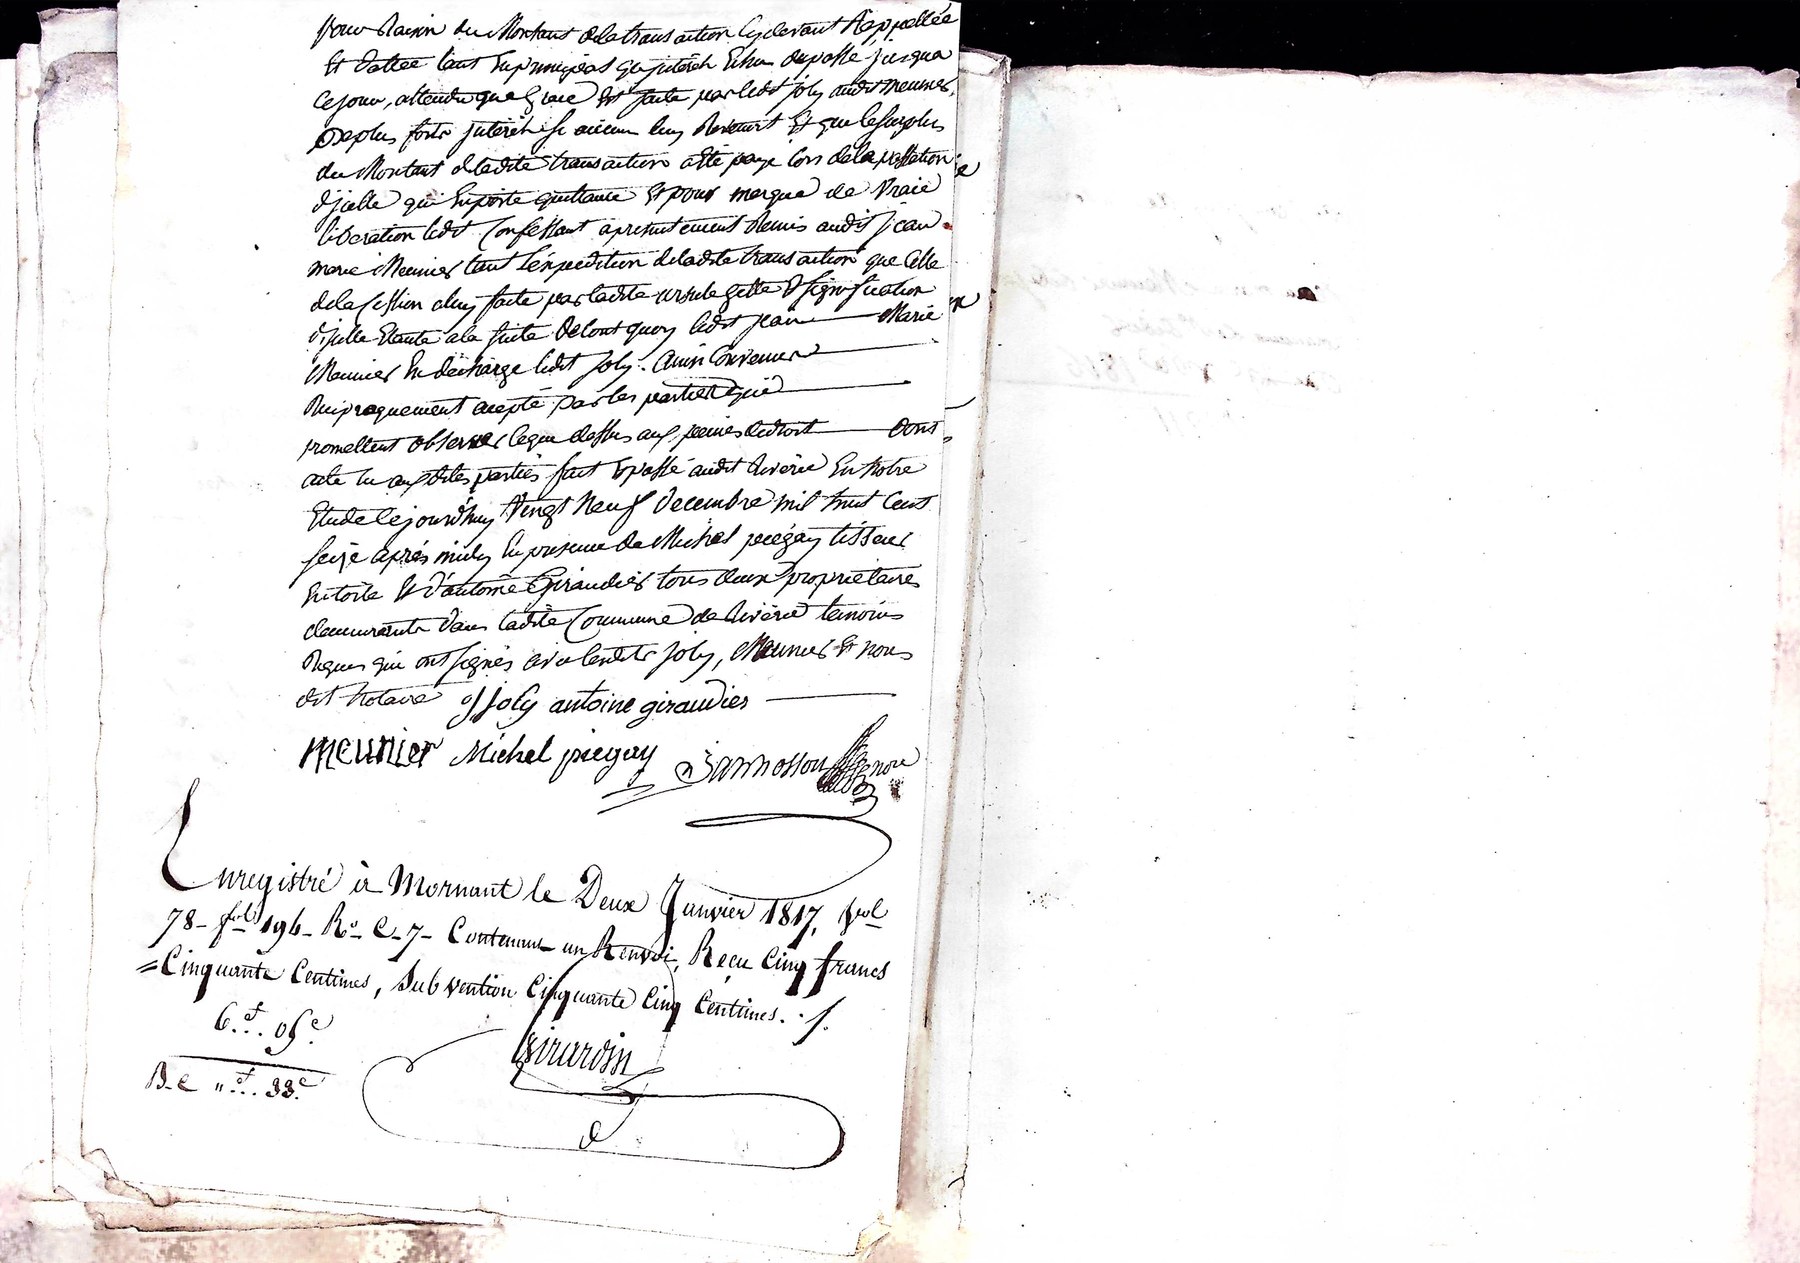 pour Raison du Montant de la transaction cy devant Rappellée
et dattée tant en principal qu'intérêt échu du passé jusqua
ce jour, attendu que grace est faite par ledit joly audit meunier,
de plus forts interêts si aucun luy Revenoit et que le surplus
du Montant de ladite transaction a été payé lors de la passation
d'icelle qui en porte quittance et pour marque de vraie
libération ledit Confessant a presentement Remis audit jean
marie Meunier tant l'expedition de ladite transaction que celle
de la cession à luy faite par ladite ursule gille & signification
d'icelle étante a la suite de tout quoy ledit jean Marie
Meunier en décharge ledit joly. Ainsi Convenu
Reciproquement accepté par les parties qui
promettent observer ce que dessus aux peines de droit Dont
acte lu auxdites parties fait & passé audit Riverie En notre
Etude Cejourd'huy vingt neuf Decembre mil huit cent
seize après midy En presence de Michel piégay tisseur
En toile & d'antoine Giraudier tous deux propriétaires
demeurants dans ladite Commune de Riverie temoins
Requis qui ont signés avec lesdits joly, Meunier & nous
dit Notaire Joly antoine giraudier
Meunier Michel piegay nore
Enregistré à Mornant le Deux Janvier 1817, vol
78 - fol 196 - Ro - C - 7 - Contenant un Renvoi, Reçu Cinq francs
Cinquante Centimes, Subvention Cinquante Cinq Centimes.
6 f. 05 c
B. C " f. 33 c
Girardin